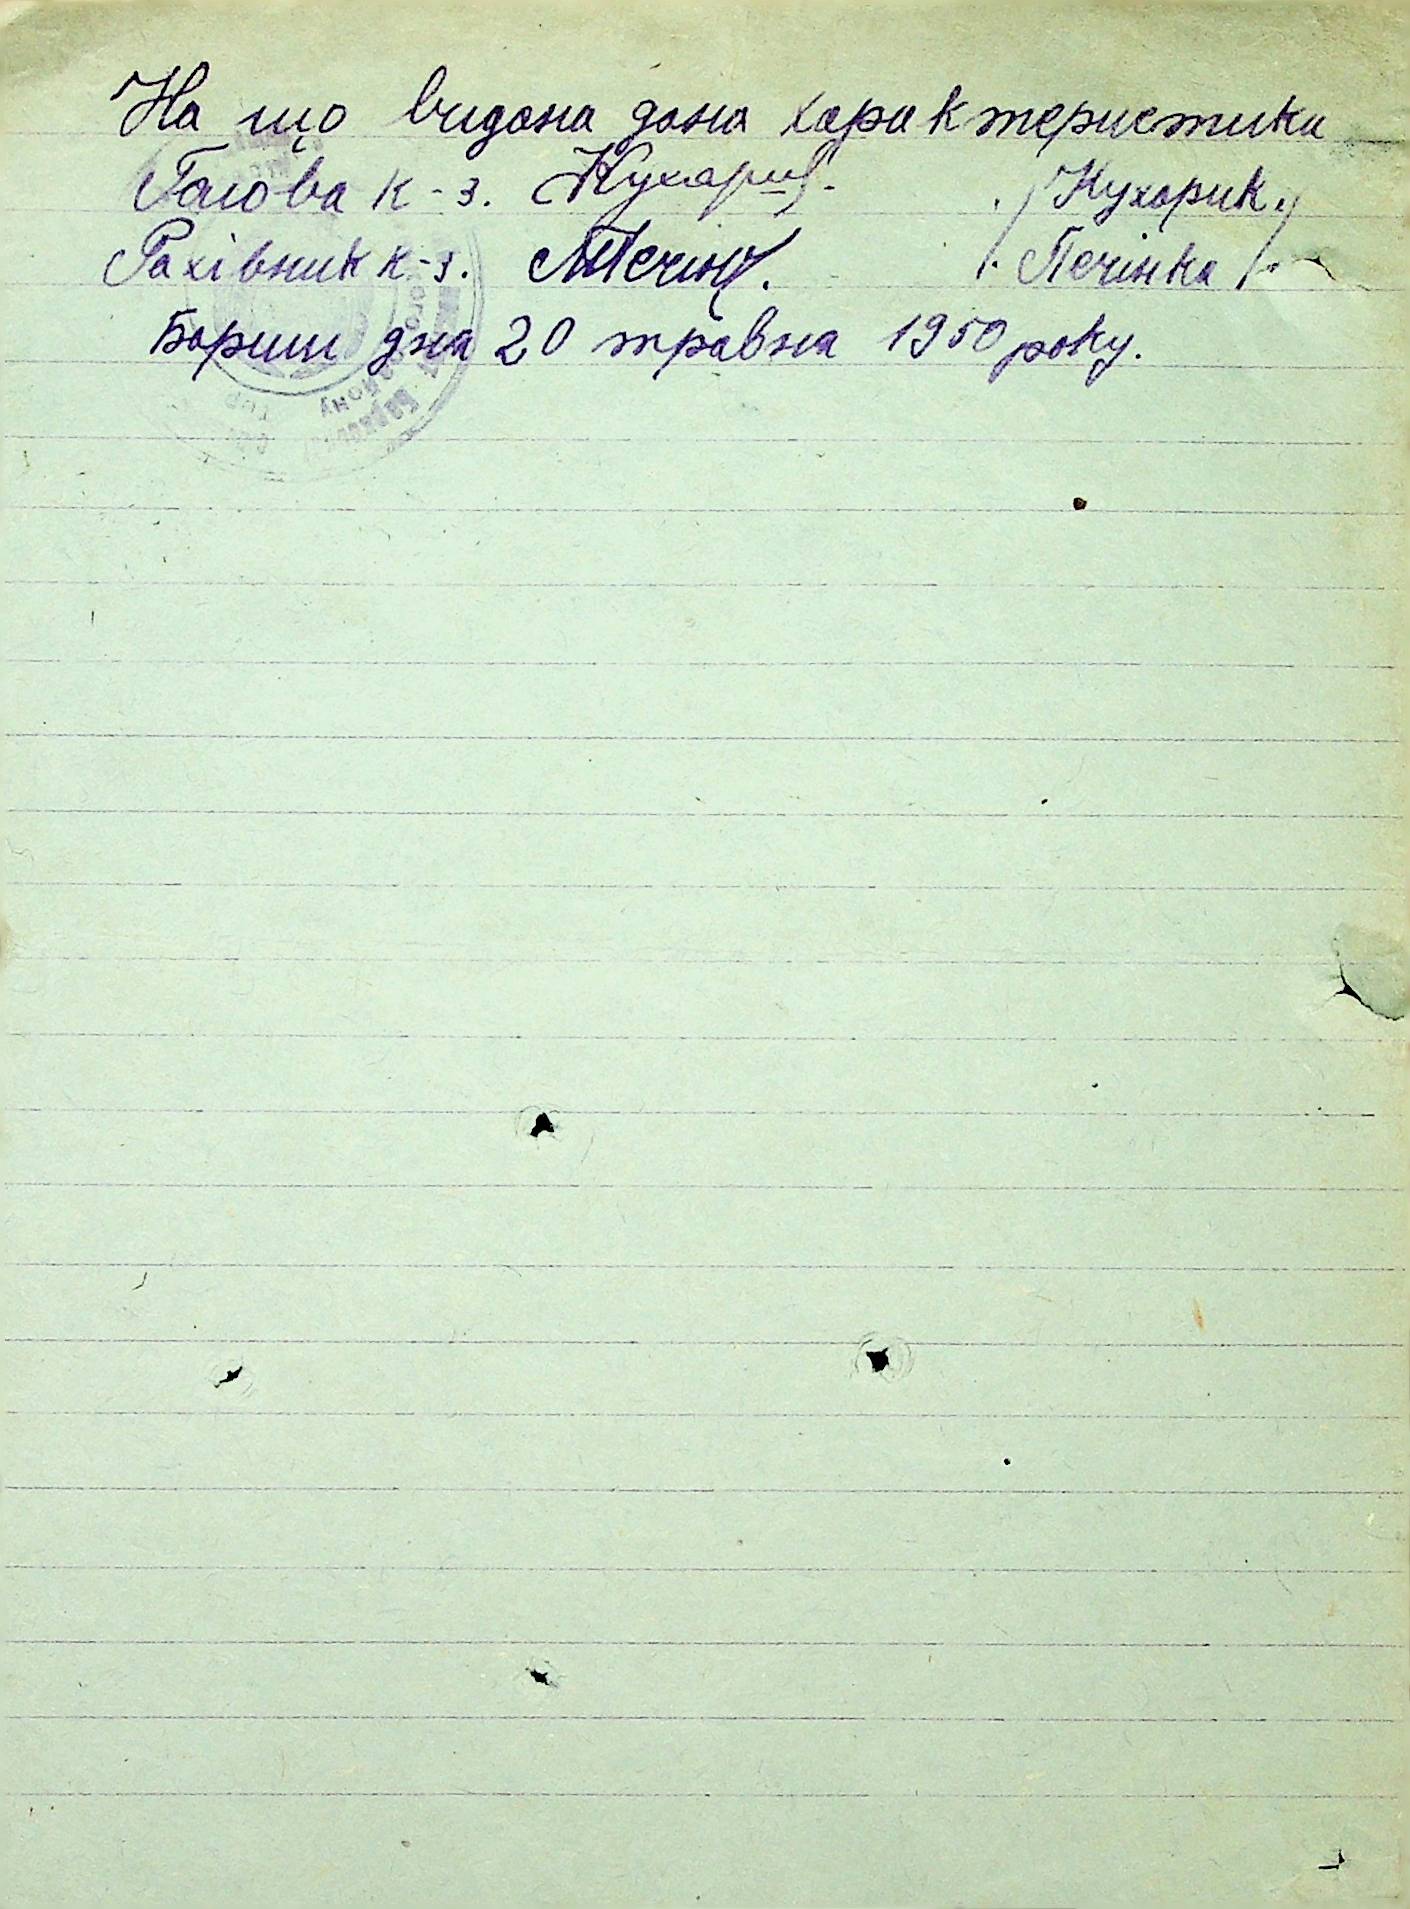 На що видана дана характеристика
Голова к-з. Кухарик. /Кухарик./
Рахівник к-з. Печінка. /Печінка/.
дня 20 травня 1950 року.